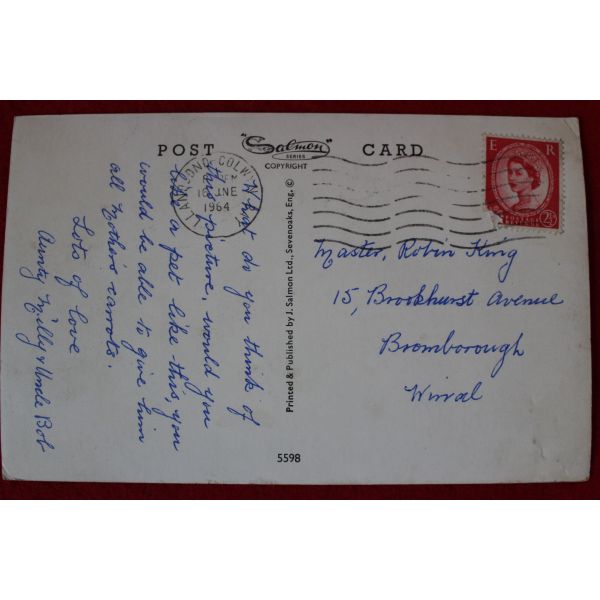 POST CARD
"Salmon"
SERIES
COPYRIGHT
LLANDUDNO COLWYN
JNE
1964
E R
2½
What do you think of
this picture, would you
like a pet like this, you
would be able to give him
all Mothers carrots.
Lots of love
Aunty Milly & Uncle Bob
Printed & Published by J. Salmon Ltd., Sevenoaks, Eng. ©
Master, Robin King
15, Brookhurst Avenue
Bromborough
Wirral
5598